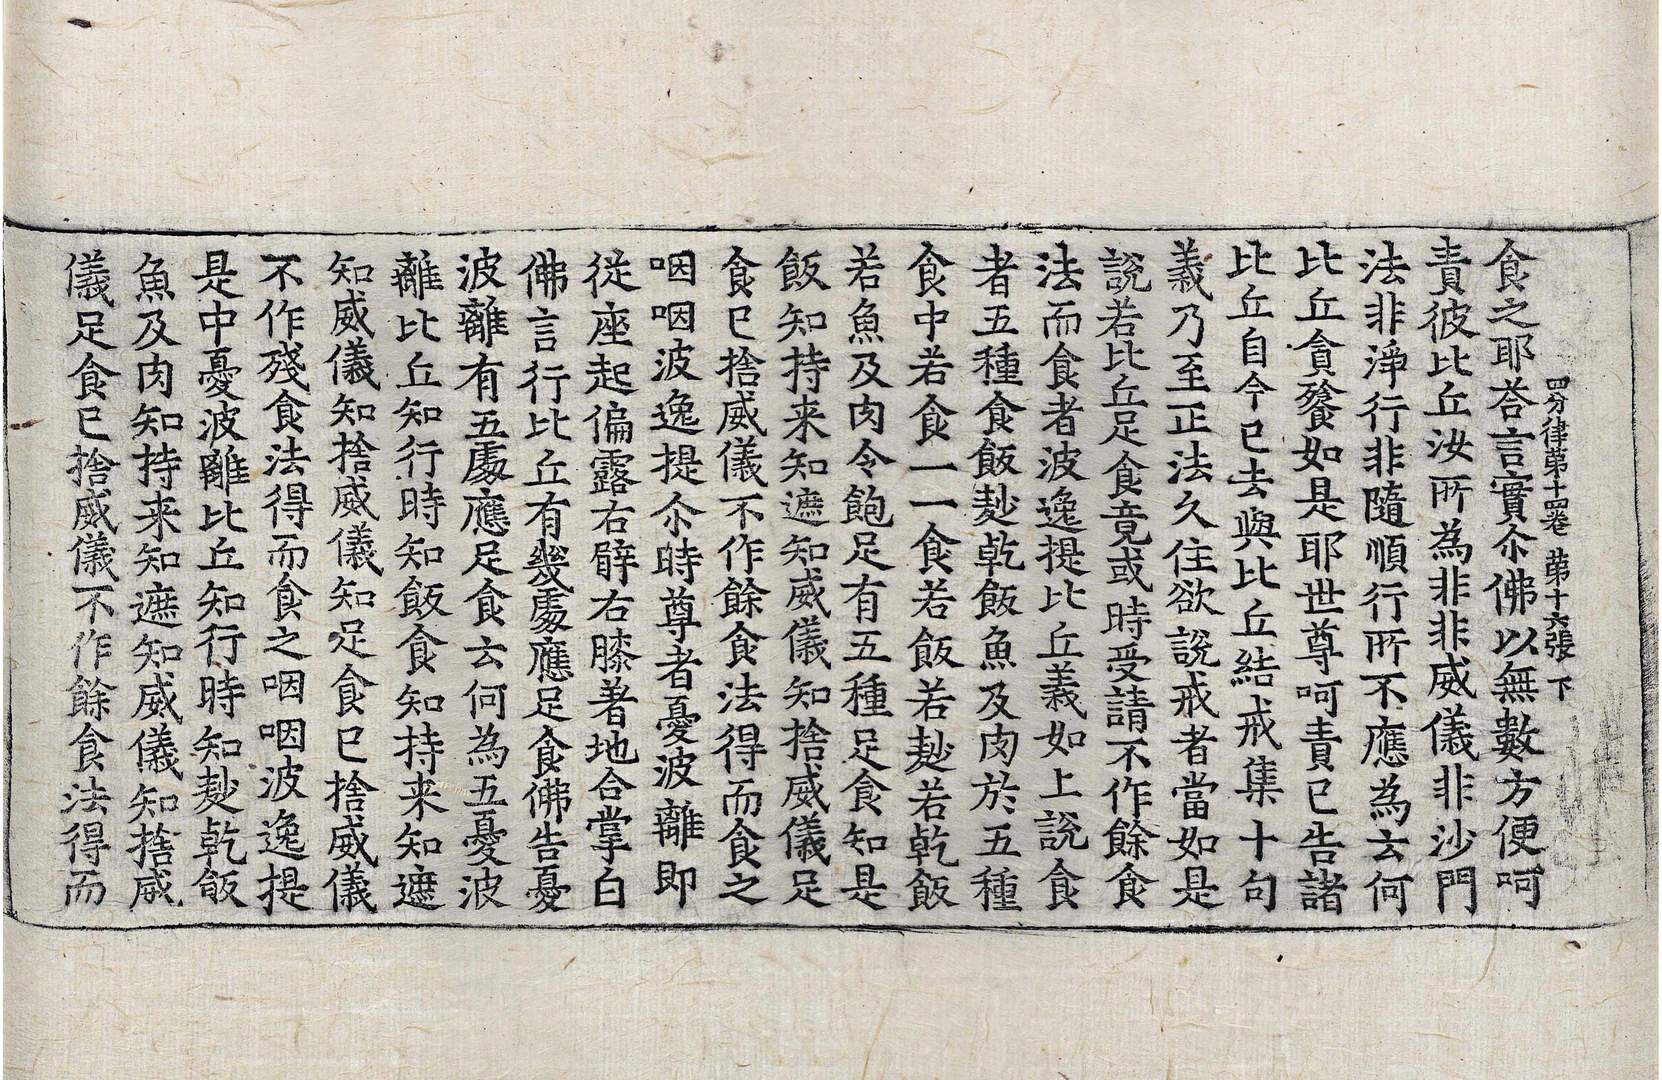 四分律第十四卷 第十六張 下
食之耶荅言實尒佛以無數方便呵
責彼比丘汝所為非非威儀非沙門
法非淨行非隨順行所不應為云何
比丘貪餮如是耶世尊呵責已告諸
比丘自今已去與比丘結戒集十句
義乃至正法久住欲說戒者當如是
說若比丘足食竟或時受請不作餘食
法而食者波逸提比丘義如上說食
者五種食飯麨乾飯魚及肉於五種
食中若食一一食若飯若麨若乾飯
若魚及肉令飽足有五種足食知是
飯知持来知遮知威儀知捨威儀足
食已捨威儀不作餘食法得而食之
咽咽波逸提尒時尊者憂波離即
從座起偏露右臂右膝著地合掌白
佛言行比丘有幾處應足食佛告憂
波離有五處應足食云何為五憂波
離比丘知行時知飯食知持来知遮
知威儀知捨威儀知足食已捨威儀
不作殘食法得而食之咽咽波逸提
是中憂波離比丘知行時知麨乾飯
魚及肉知持来知遮知威儀知捨威
儀足食已捨威儀不作餘食法得而